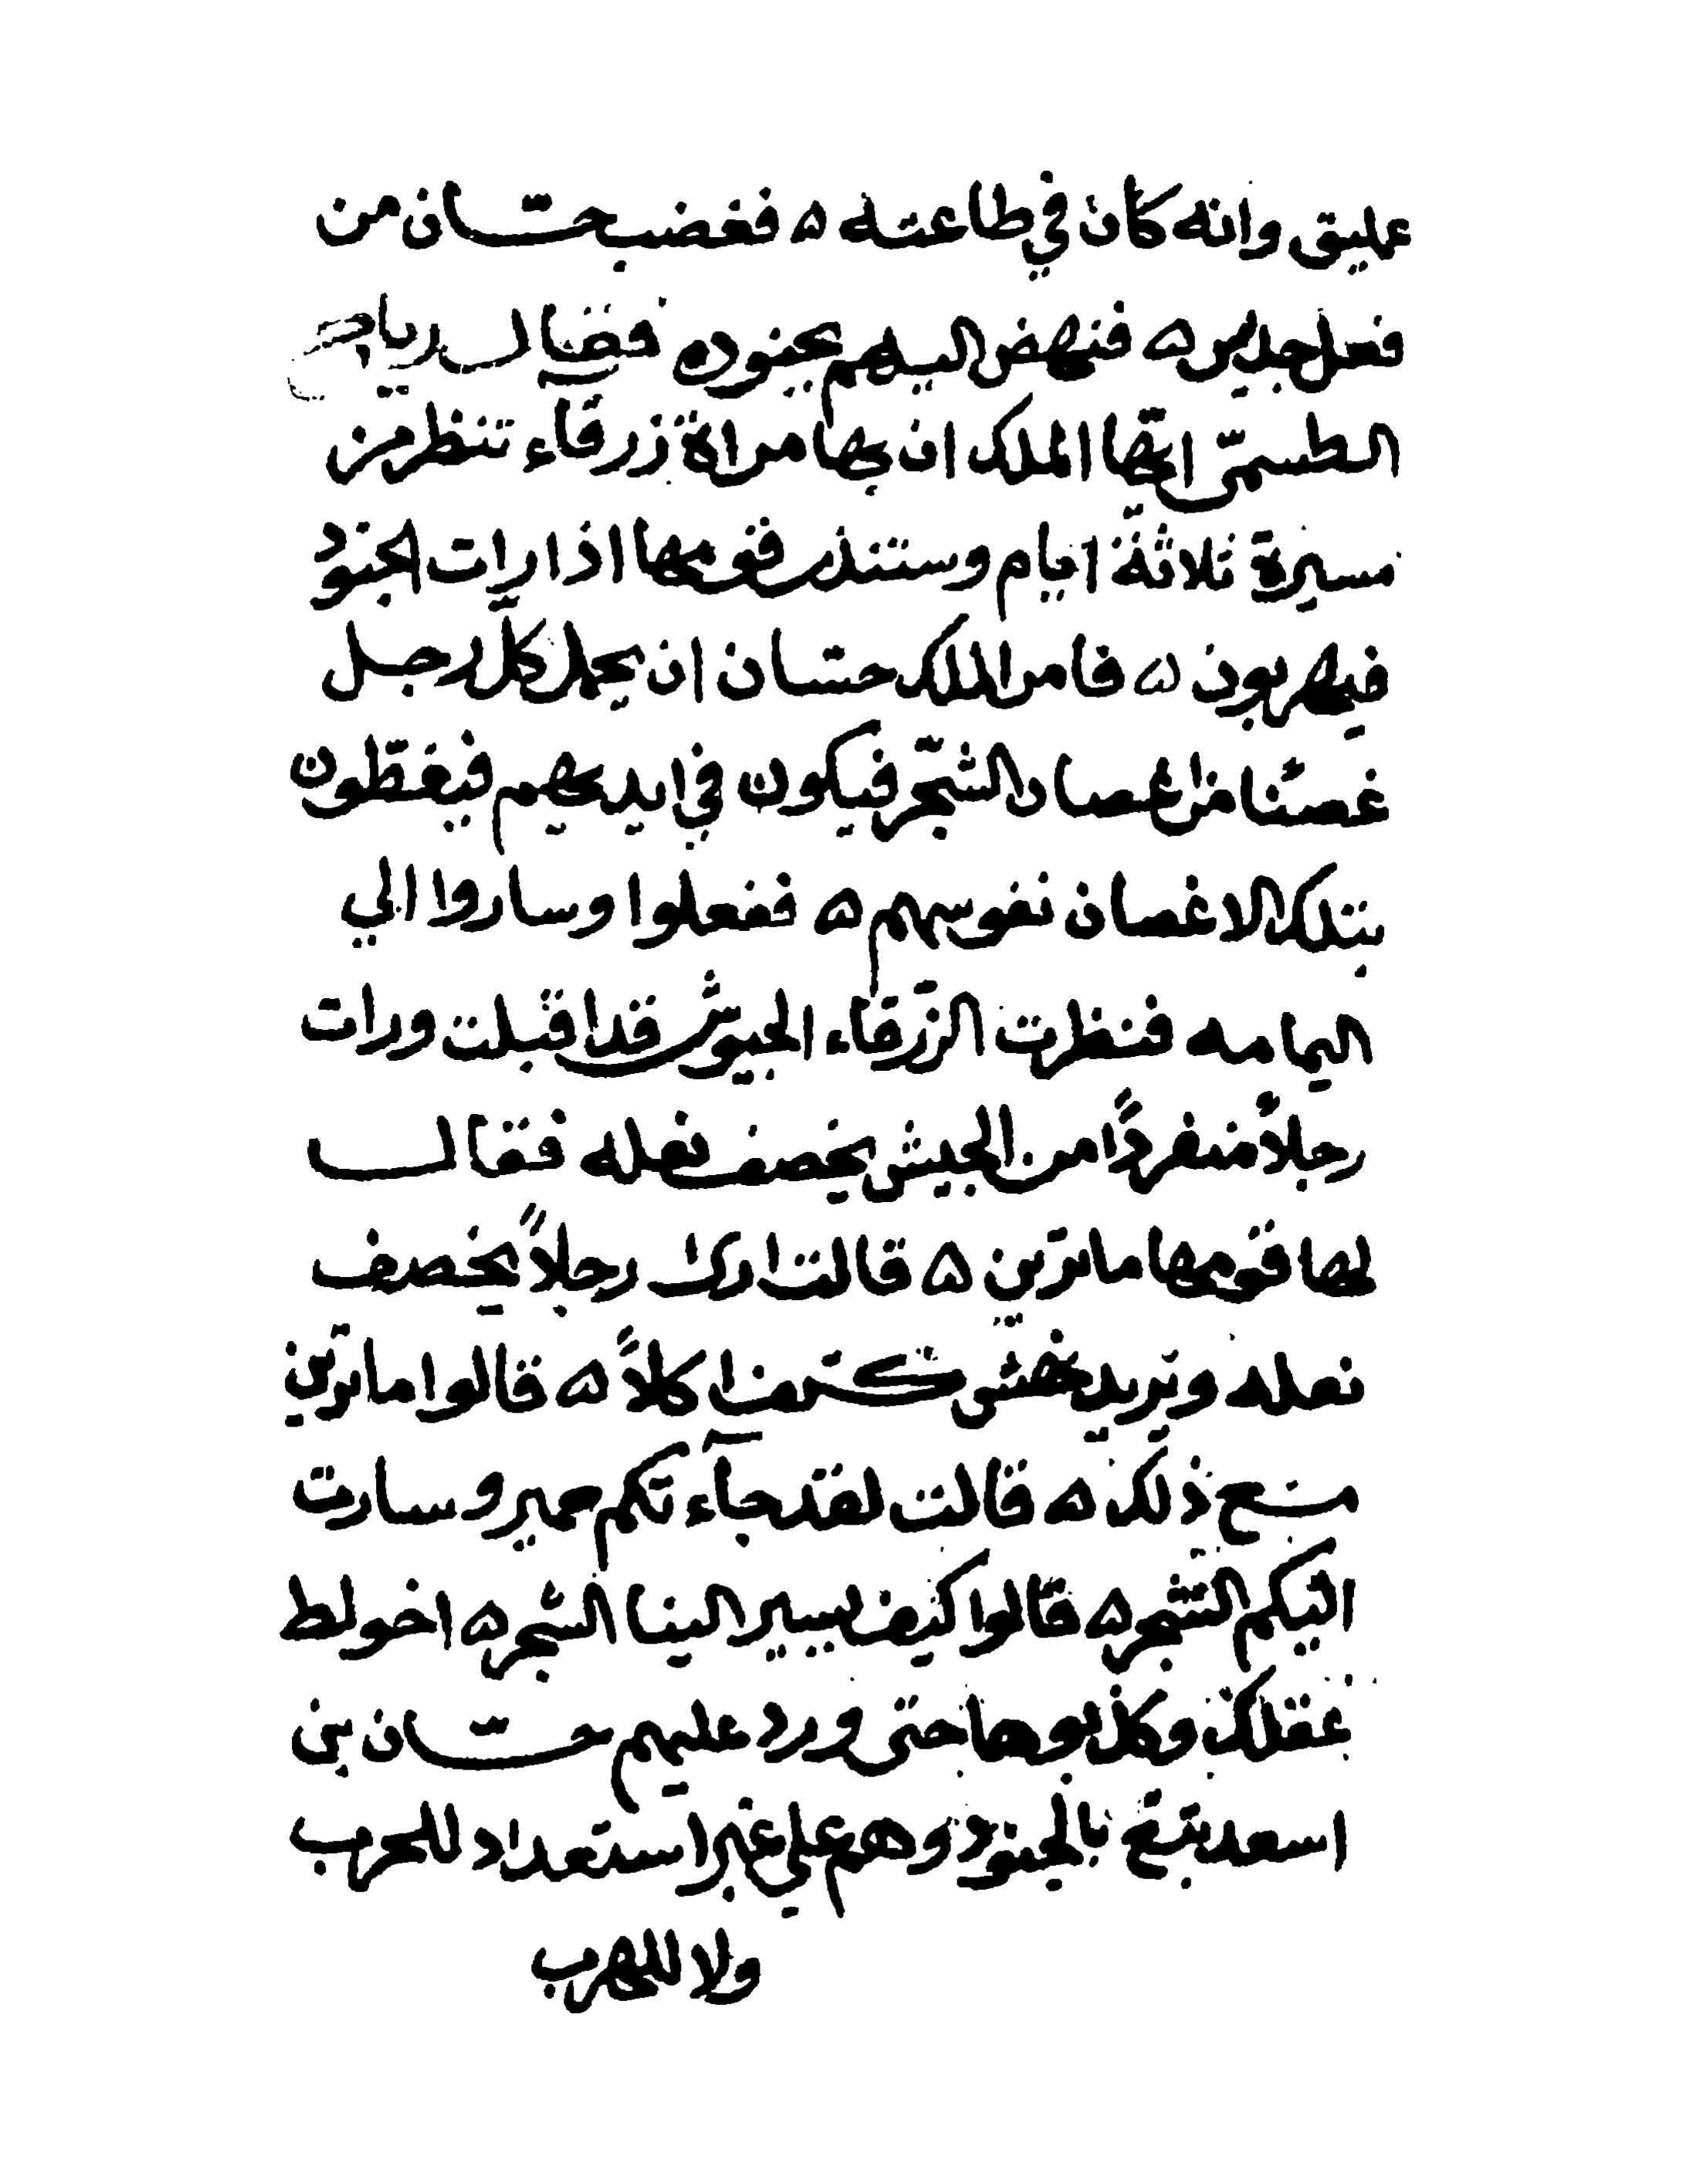 عمليق وانه كان في طاعته ۵ فغضب حسّان من
فعل جديس ۵ فنهض اليهم بجنوده فقال رياح
الطسميّ ايّها الملك ان بها مراة زرقاء تنظر من
مسيرة ثلاثة ايام وستنذر قومها اذا رات الجنود
فيهربون ۵ فامر الملك حسّان ان يحمل كل رجل
غصنًا من اغصان الشّجر فيكون في ايديهم فيغطّون
بتلك الاغصان نفوسهم ۵ ففعلوا وساروا الي
اليمامه فنظرت الزّرقاء الجيوش قد اقبلت ورات
رجلاً منفردًا من الجيش يخصف نعله فقال
لها قومها ما ترين ۵ قالت ارى رجلاً يخصف
نعله ويريد ينهش كتفا اكلاً ۵ قالوا ما ترين
مع ذلك ۵ قالت لقد جآءتكم حمير وسارت
اليكم الشّجر ۵ قالوا كيف يسير الينا الشّجر ۵ اخولط
عقلك وكذبوها حتى ورد عليهم حسّان بن
اسعد تبّع بالجنود وهم علي غير استعداد للحرب
ولا للهرب